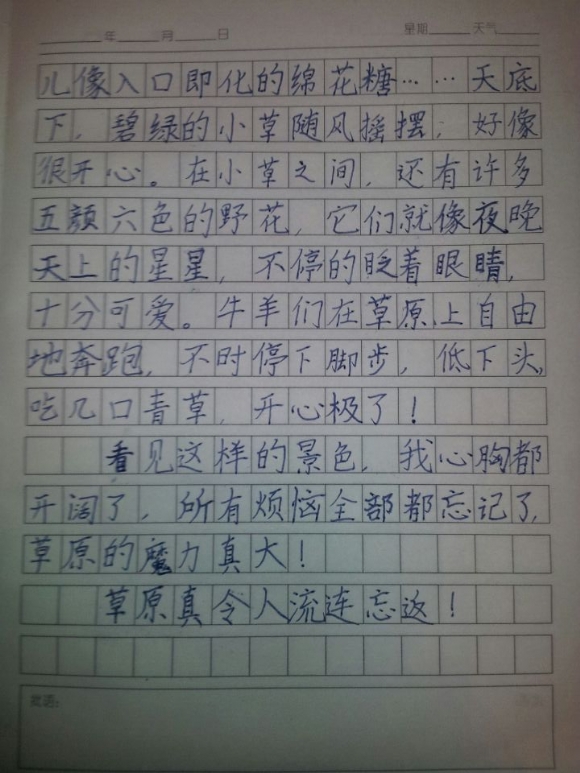 年 月 日 星期 天气
儿像入口即化的绵花糖……天底
下，碧绿的小草随风摇摆，好像
很开心。在小草之间，还有许多
五颜六色的野花，它们就像夜晚
天上的星星，不停的眨着眼睛，
十分可爱。牛羊们在草原上自由
地奔跑，不时停下脚步，低下头，
吃几口青草，开心极了！
看见这样的景色，我心胸都
开阔了，所有烦恼全部都忘记了，
草原的魔力真大！
草原真令人流连忘返！
批语：